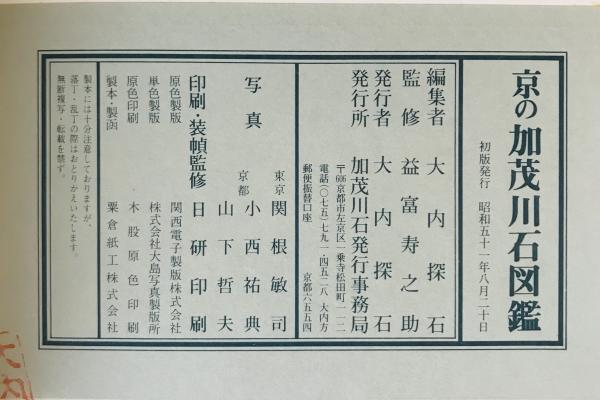 京の加茂川石図鑑
初版発行 昭和五十一年八月二十日
編集者 大内探石
監修 益富寿之助
発行者 大内探石
発行所 加茂川石発行事務局
〒606京都市左京区一乗寺松田町一一二
電話(〇七五)七九一・四五二八 大内方
郵便振替口座 京都六五五四
写真 東京 関根敏司
京都 小西祐典
山下哲夫
印刷・装幀監修 日研印刷
原色製版 関西電子製版株式会社
単色製版 株式会社大島写真製版所
原色印刷 木股原色印刷
製本・製函 栗倉紙工株式会社
製本には十分注意しておりますが、
落丁・乱丁の際はおとりかえいたします。
無断複写・転載を禁ず。